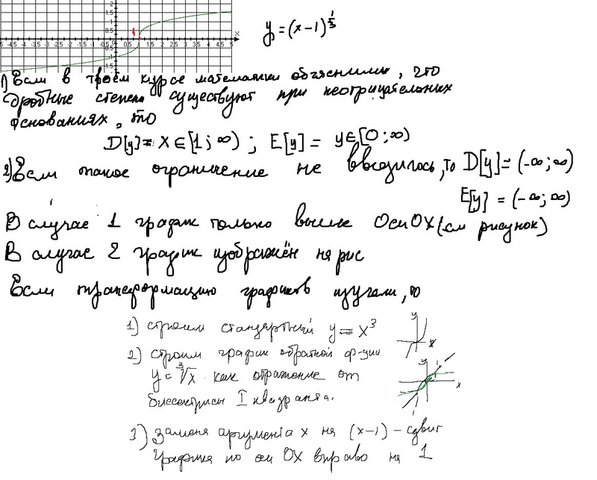 y = (x-1)^{1/3}
1) Если в твоём курсе математики объяснили, что
дробные степени существуют при неотрицательных
основаниях, то
D[y] = x∈[1; ∞) ; E[y] = y∈[0; ∞)
2) Если такое ограничение не вводилось, то D[y] = (-∞; ∞)
E[y] = (-∞; ∞)
В случае 1 график только выше Оси ОХ (см рисунок)
В случае 2 график изображён на рис
Если трансформацию графиков изучали, то
1) строим стандартный y = x^3
2) строим график обратной ф-ции
y = ∛x как отражение от
биссектрисы I квадранта.
3) Замена аргумента x на (x-1) - сдвиг
графика по оси ОХ вправо на 1